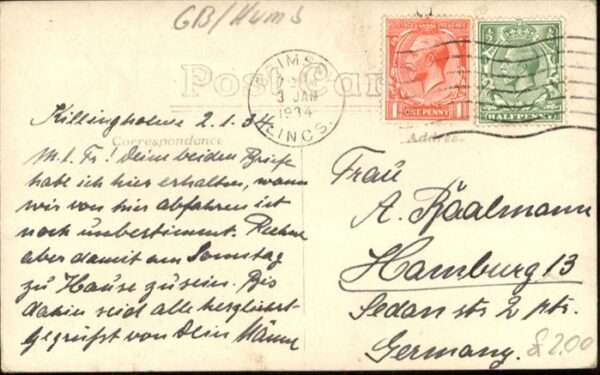 GB/Humb
Post Card
GRIMSBY
3 JAN
1934
LINCS.
ONE PENNY
HALFPENNY
Killingholme 2.1.34.
Correspondance
Address
M. l. Fr! Deine beiden Briefe
habe ich hier erhalten, wann
wir von hier abfahren ist
noch unbestimmt. Rechne
aber damit am Sonnabend
zu Hause zu sein. Bis
dahin seid alle herzlichst
gegrüßt von Dein Männe
Frau
A. Baalmann
Hamburg 13
Sedanstr 2 ptr.
Germany.
£2.00